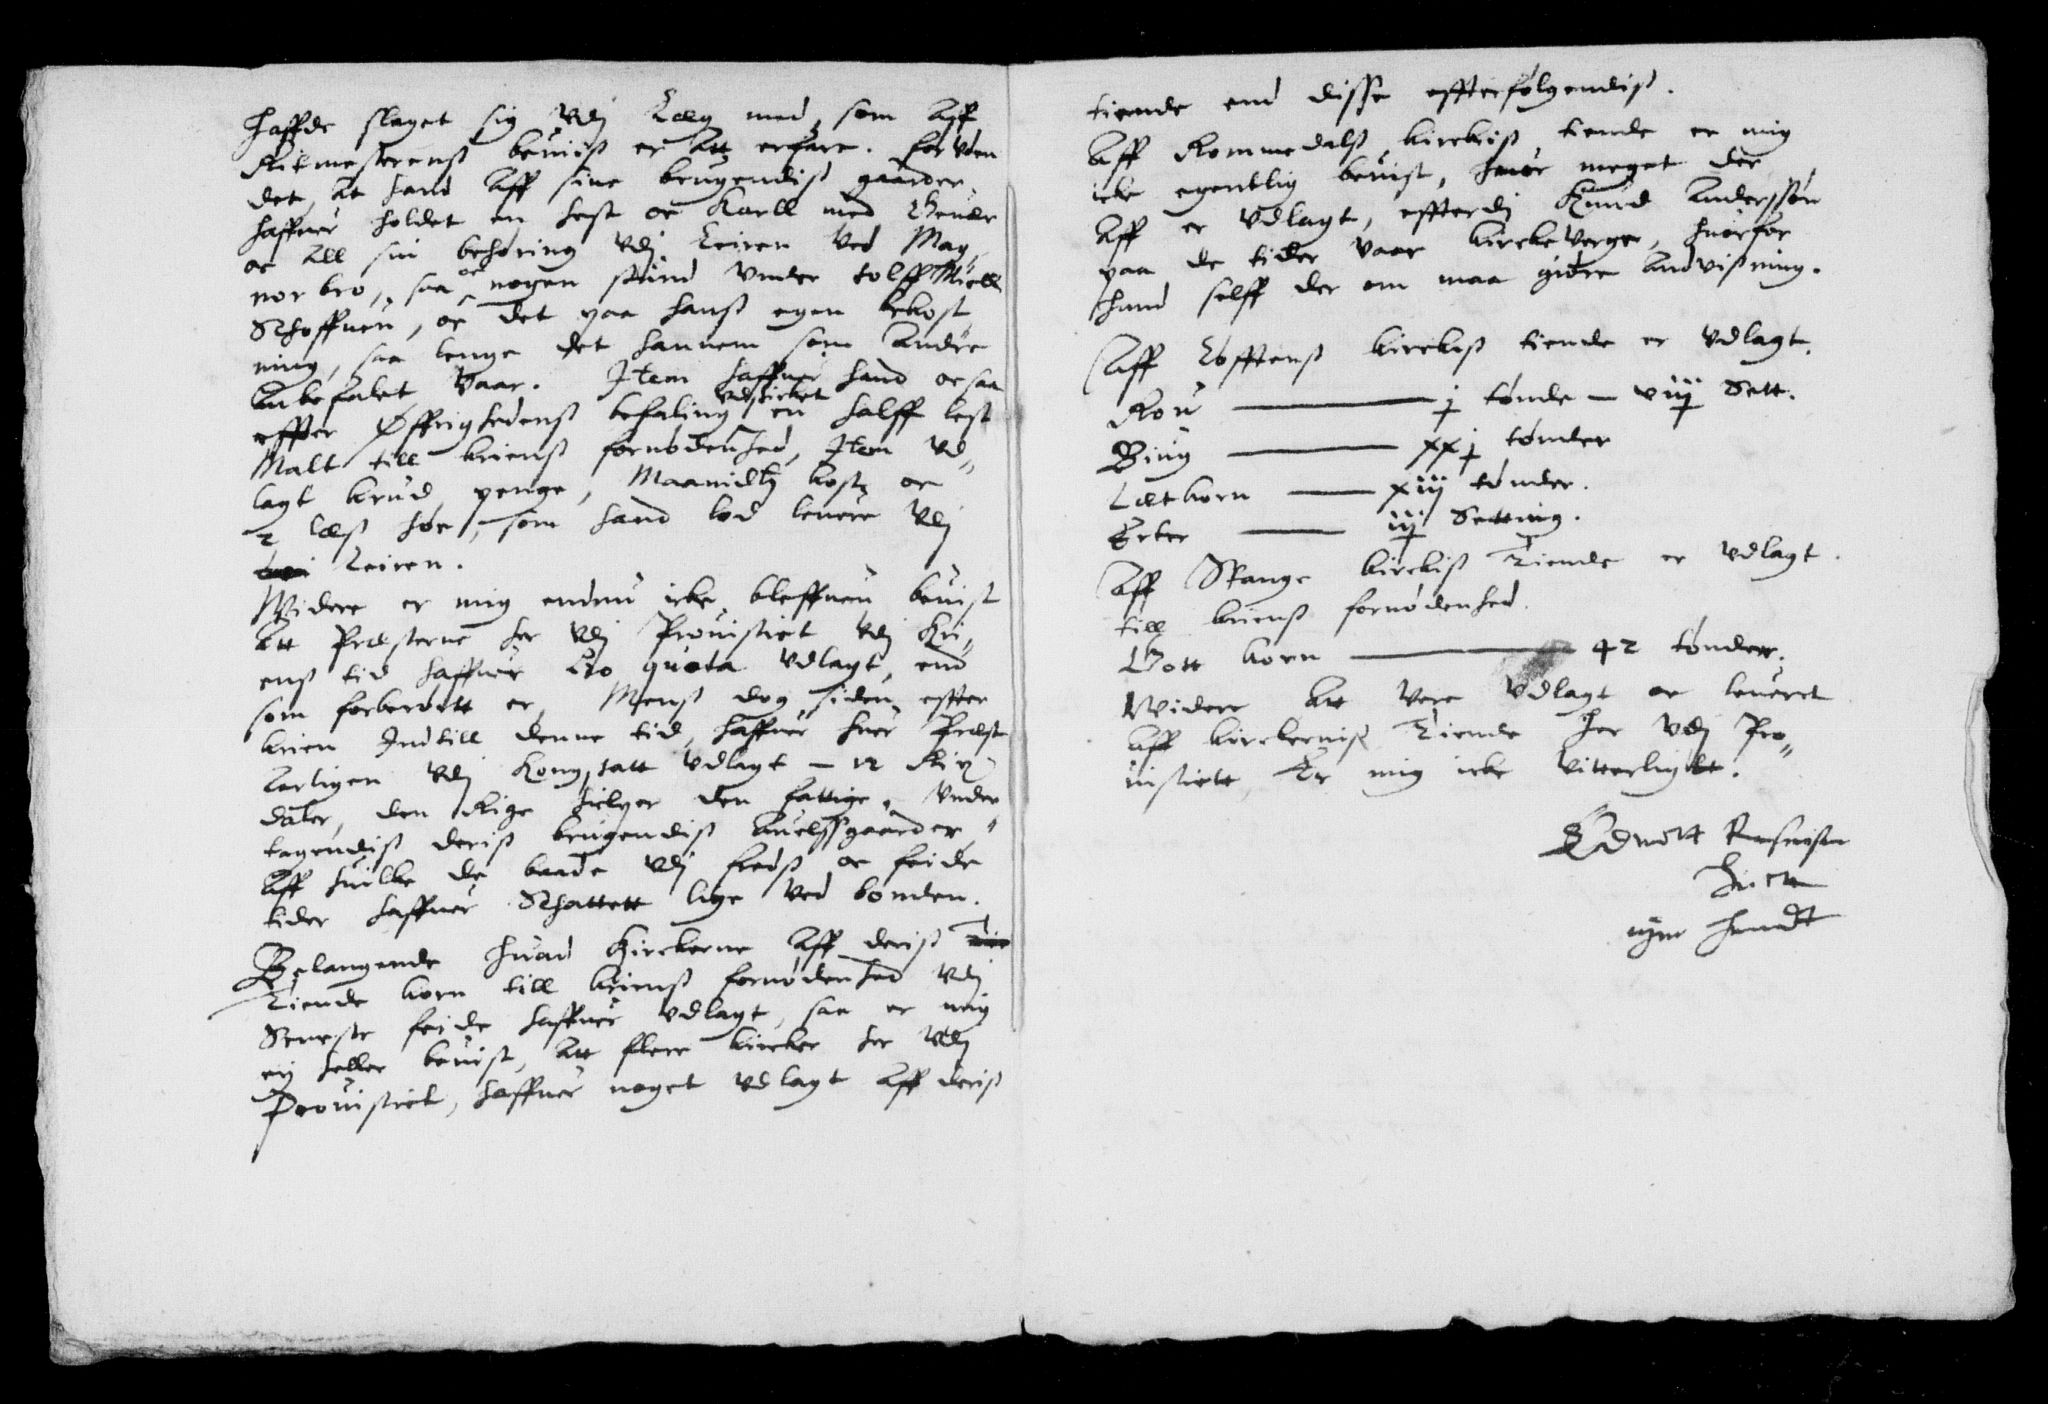 haffde slaget sig vdj Læg med, som Aff
Ritmesterens beuiis er Att erfare. foruden
det, At hand Aff sine brugendis gaarder
haffuer holdet en hest oc Karll med Geuær
oc All sin behøring vdj Leiren ved Mag„
nor bro, saa oc nogen stund vnder tolff Miell
Schoffuen, oc det paa hans egen bekost„
ning, saa lenge det hannem som Andre
Anbefalet vaar. Item haffuer hand oc saa
effter Øffrighedens befaling vdstricket en halff lest
Malt till kriens fornødenhed, Item vd„
lagt krud penge, Maanidtz kost oc
2 læs høe, som hand lod leuere vdj
Leiren.
Widere er mig endnu icke bleffuen beuist
Att Præsterne her vdj Prouistiet vdj Kri„
ens tid haffuer Ao quota vdlagt, end
som forberørtt er, Mens dog siden effter
krien Indtill denne tid, haffuer huer Præst
Aarligen vdj Kong, skatt vdlagt – 12 Rix
daler, den Rige hielper den fattige, vnder„
tagendis deris brugendis Auelsgaarder,
Aff huilke de baade vdj freds oc feide
tider haffuer Schattett lige ved bonden.
Belangende huad Kirckerne Aff deris
Tiende korn till kriens fornødenhed vdj
Seneste feide haffuer vdlagt, saa er mig
eij heller beuist, Att flere kircker her vdj
Prouistiet, haffuer noget vdlagt Aff deris
tiende end disse effterfølgendis.
Aff Rommedals kirckis tiende er mig
icke egentlig beuist, huor meget der
Aff er vdlagt, effterdj Knud Anderssøn
paa de tider vaar kirckeverger, huorfor
hand selff der om maa giøre Anduisning.
Aff Løfftens kirckis tiende er vdlagt.
Rou — j tønde – viij Sett.
Biug — xxj tønder
Læt korn — xiij tønder.
Erter — iij Setting.
Aff Stange kirckis Tiende er vdlagt
till kriens fornødenhed.
Gott korn — 42 tønder.
Widere Att vere vdlagt oc leueret
Aff kirckernis Tiende her vdj Pro„
uistiett, Er mig icke vitterligtt.
egen handt